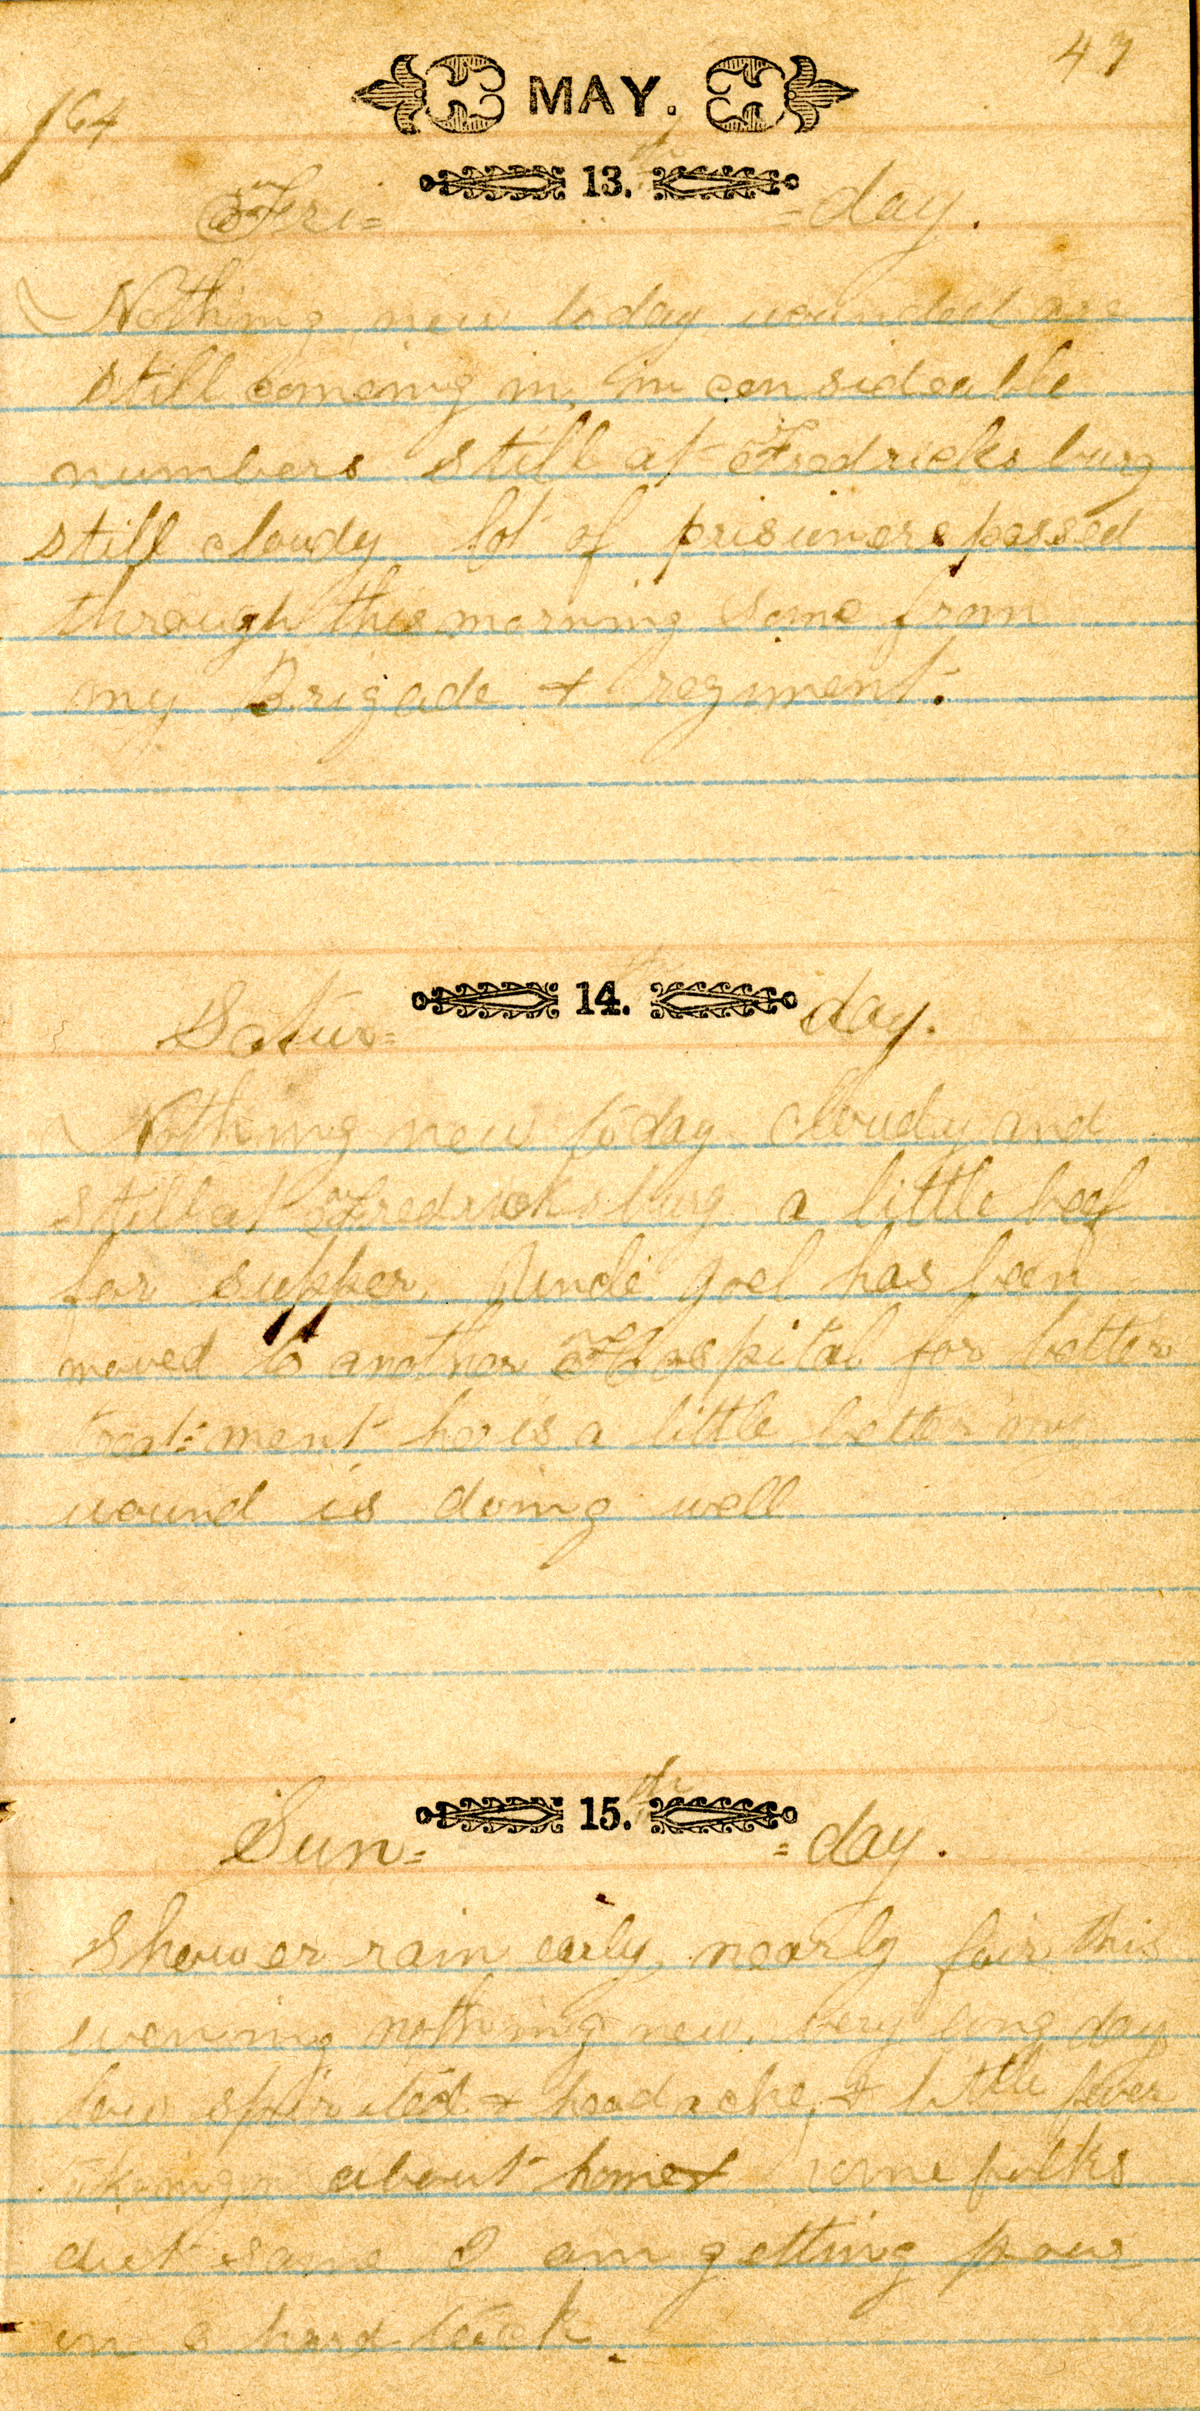 47
MAY.
/64
13.th
Fri= =day.
Nothing new today wounded are
still comeing in, in consideable
numbers still at Fredricksburg
still cloudy lot of prisiuners passed
through this morning Some from
my Brigade + regiment.
14.th
Satur= day.
Nothing new today cloudy and
still at Fredricksburg a little beef
for supper, Uncle Joel has been
moved to anothor Hospital for better
treat=ment he is a little better my
wound is doing well
15.th
Sun= =day.
Shower rain early, nearly fair this
evening nothing new. very long day
low spirited + headache, + little fever
about home + folks
diet same I am getting poor
on hard tack.